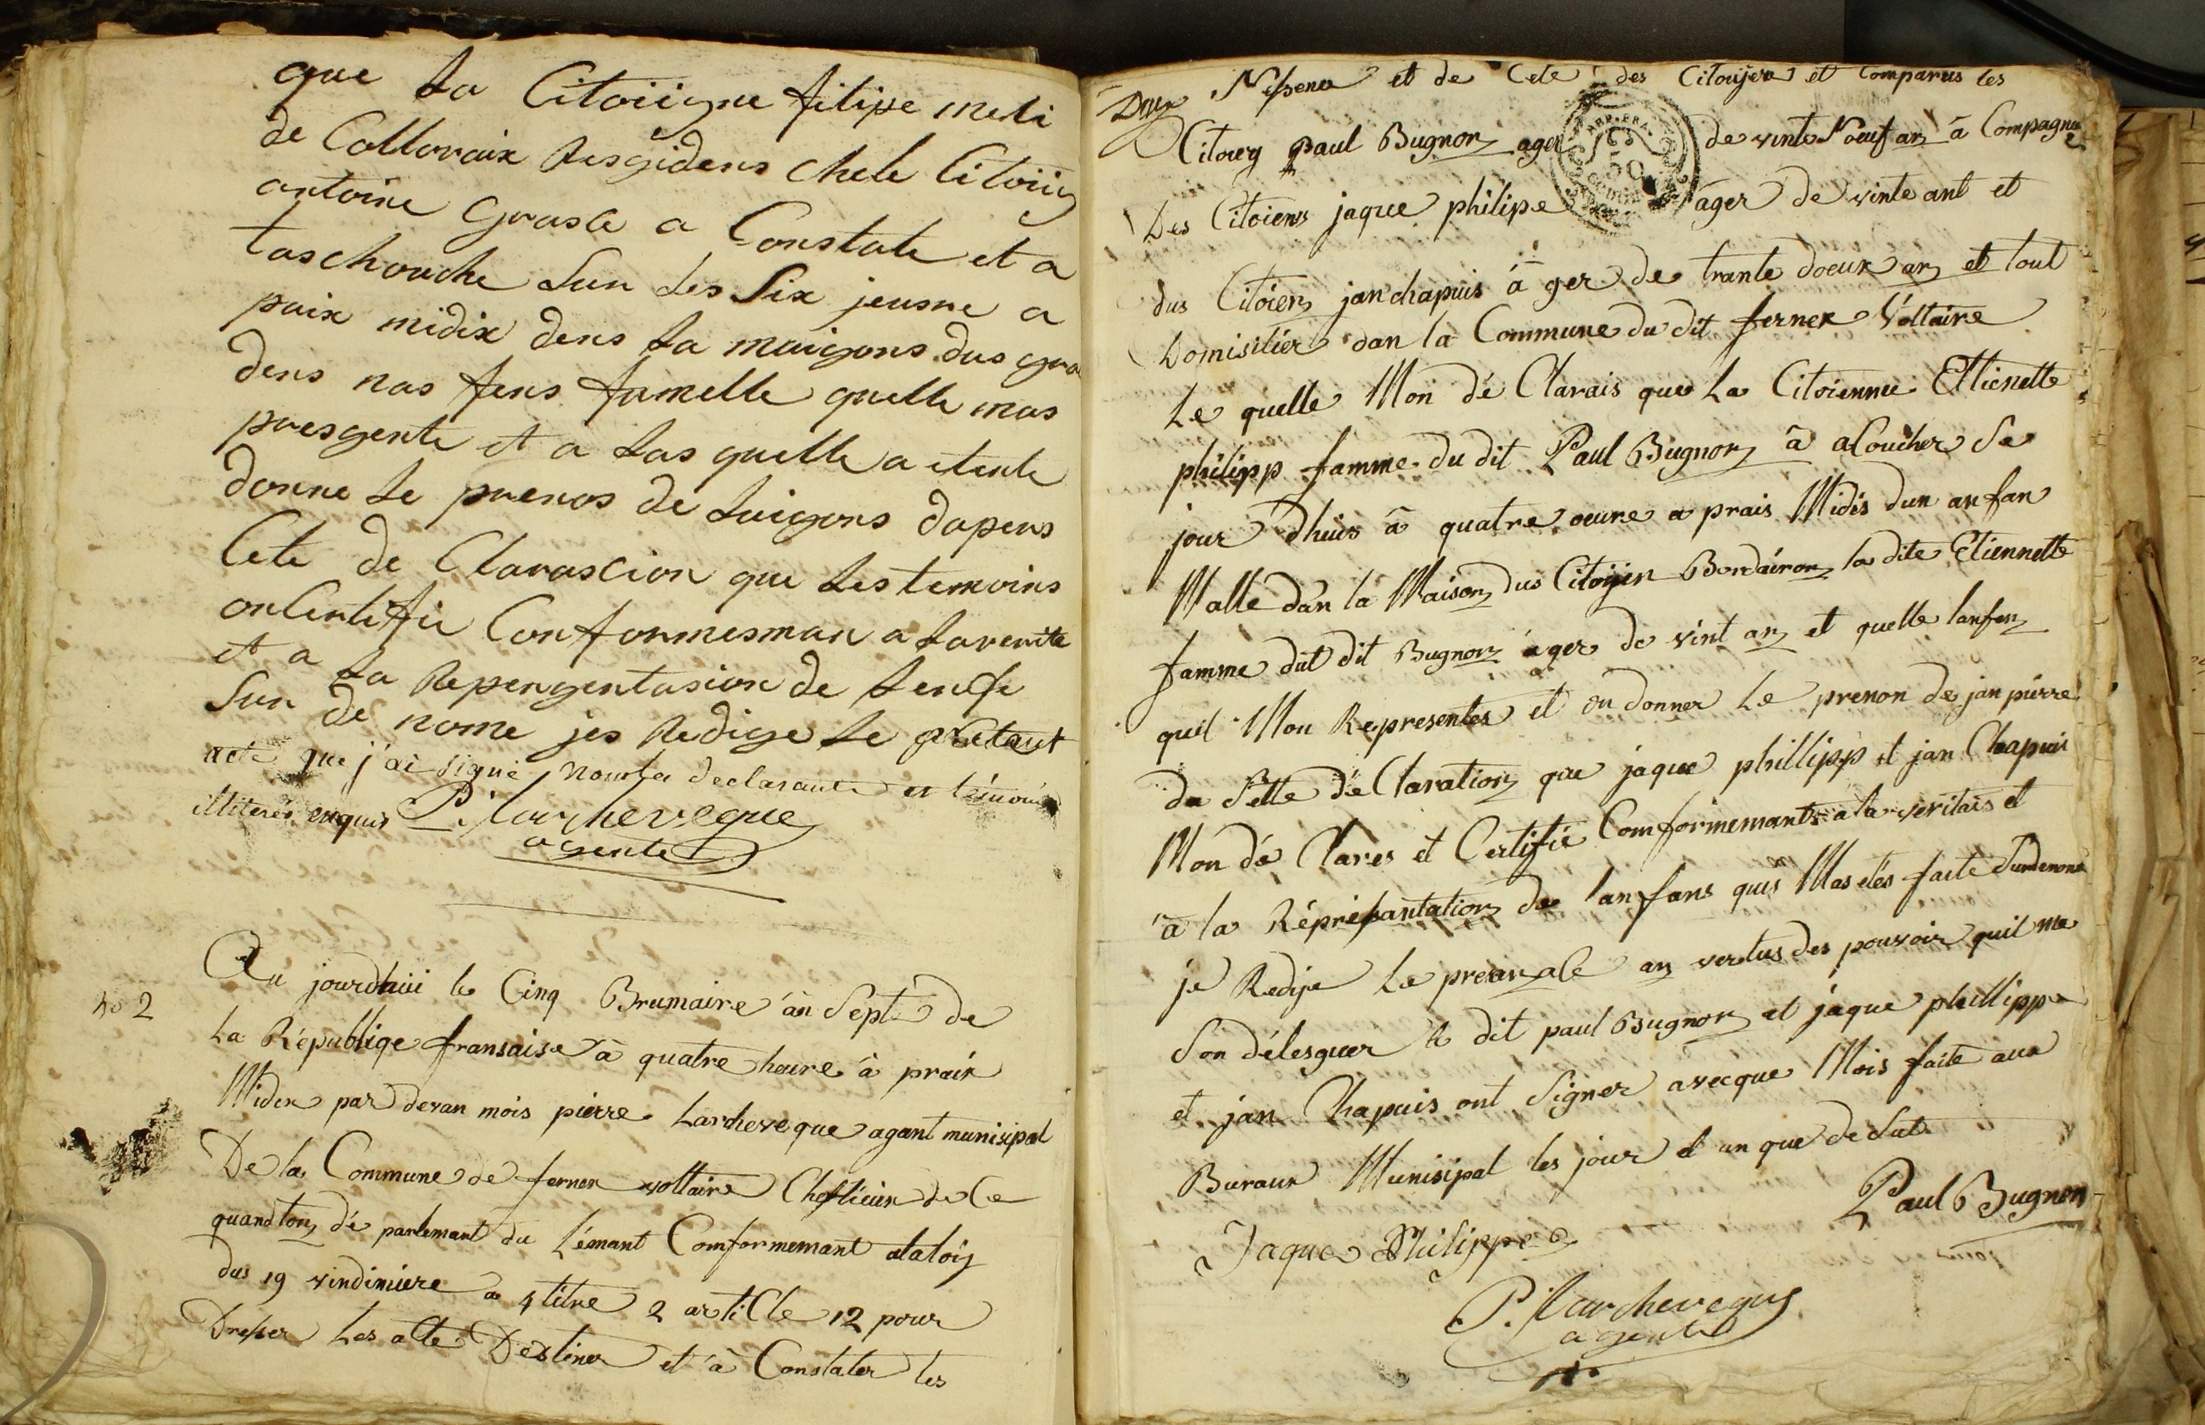 que la Citoiigne filipe meli
de Collovaix Resgidens Chele Citoiig
antoine Grasce a Constate et a
taschouche Sun les Six jeusne a
paix midix dens la maigons dus gra
dens nas fens famelle quelle mas
presgente et a las quelle a etente
donne le prenos de Luigons dapens
Cete de Clarascion que les temoins
on Certifie Conformesman a la verite
et a la Repengentasion de lenfe
Sun de nome jes Redige le
acte que j'ai signé non la declarante et témoins
illiterés enquis P. Larcheveque
agente
No 2
Au jourdhui le Cinq Brumaire án Sépt de
La Républiqe fransaise à quatre heure à práix
Midex par devan mois pierre Larcheveque agant munisipal
De la Commune de ferner voltaire Cheflieüx de Ce
quandton dé partemant du Lémant Comformemant alaloiy
dus 19 vindimiere a 4 titre 2 artiCle 12 pour
Dresser Les aCte Destiner et á Constater les
Naissence et de Cele des Citoijen et Comparus les
Deux
Citoieg paul Bugnon ager de vinte Noeuf an à Compagne
Des Citoiens jaque philipe ager de vinte ant et
dus Citoien jan chapuis à ger de trante doeux an et tout
Domisilier dan la Commune du dit ferner Voltaire
Le quelle Mon dé Clarais que La Citoienne Ettienette
philipp famme du dit Paul Bugnon à aCoucher Se
jour Dhuis à quatre oeure a prais Midis dun anfan
Malle dan la Maison dus Citoÿen Bordáiron la dite Etiennette
famme dut dit Bugnon ager de vint an et quelle lanfen
quil Mon Representer et ou donner Le prenon de jan pierre
da Sette déClaration que jaque phillipp et jan Chapuis
Mon dé Clarer et Certifie Comformemants a la veritais et
à la Réprésantation de lanfans quis Mas étés faite
je Redije Le an vertus des pouvoir quil me
Son délesguer le dit paul Bugnon et jaque phillippe
et jan Chapuis ont Signer avecque Mois faite aux
Buraux Munisipal les jour et an que de Sut
Paul Bugnon
Jaque Philippe
P. Larcheveque
agente